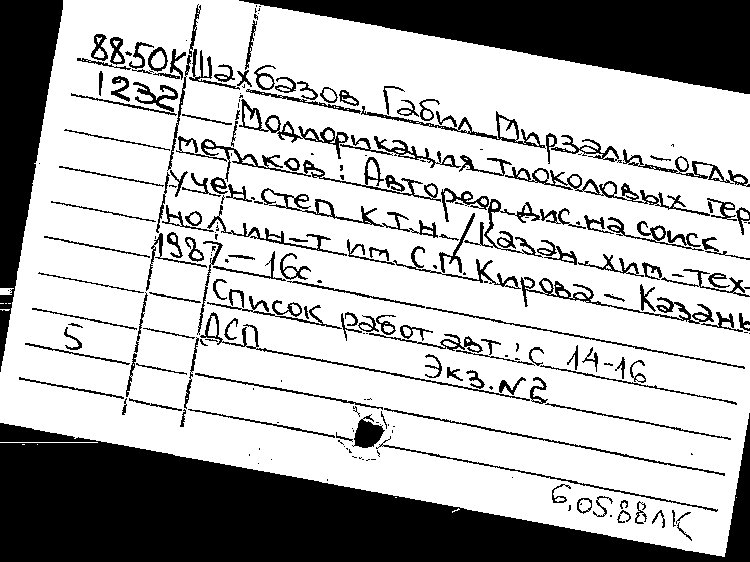 88-50К Шахбазов, Габил Мирзали-оглы
1232
Модификация тиоколовых гер
метиков: Автореф. дис. на соиск.
учен. степ. к.т.н. / Казан. хим.-тех-
нол. ин-т им. С.М. Кирова. - Казань
1987. - 16с.
Список работ авт.: с 14-16
5 ДСП.
Экз. №2
6,05.88 ЛК